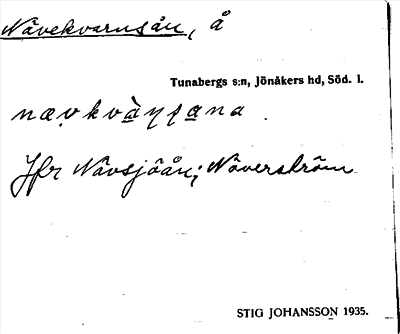 Nävekvarnsån, å
Tunabergs s:n, Jönåkers hd, Söd. l.
Jfr Nävsjöån; Näverström
STIG JOHANSSON 1935.